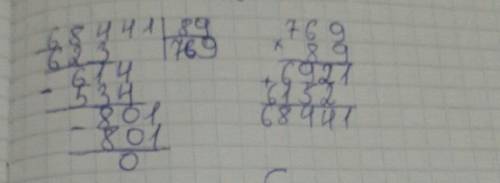 68441 89
623 769
614
- 534
801
- 801
0
769
× 89
6921
+ 6152
68441